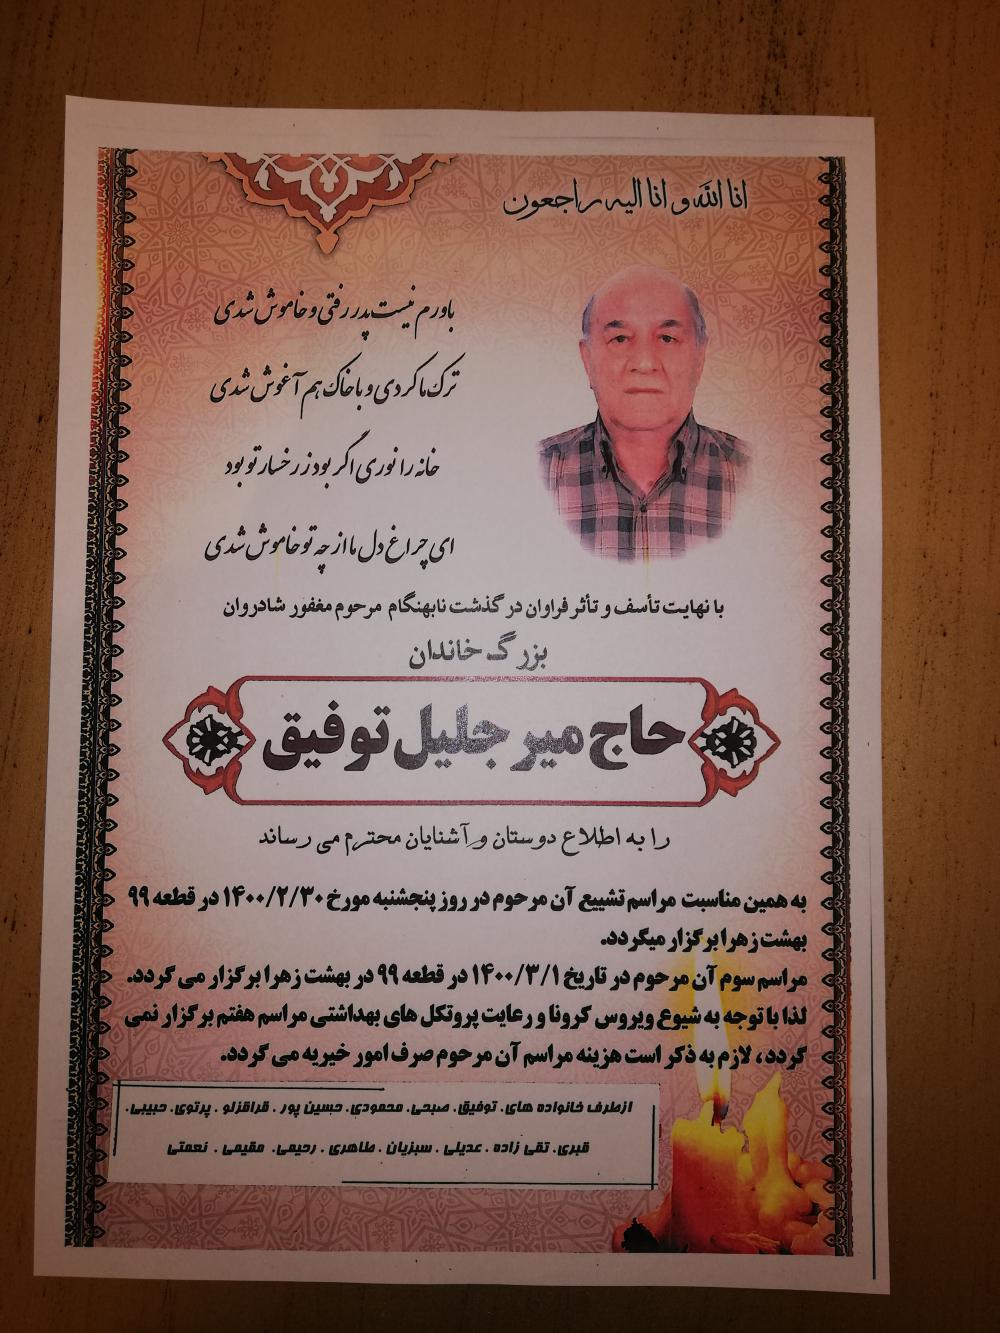 انا الله و انا الیه راجعون
باورم نیست پدر رفتی و خاموش شدی
ترک ما کردی و با خاک هم آغوش شدی
خانه را نوری اگر بود ز رخسار تو بود
ای چراغ دل ما از چه تو خاموش شدی
با نهایت تأسف و تأثر فراوان در گذشت نابهنگام مرحوم مغفور شادروان
بزرگ خاندان
حاج میر جلیل توفیق
را به اطلاع دوستان و آشنایان محترم می رساند
به همین مناسبت مراسم تشییع آن مرحوم در روز پنجشنبه مورخ ۱۴۰۰/۲/۳۰ در قطعه ۹۹
بهشت زهرا برگزار میگردد.
مراسم سوم آن مرحوم در تاریخ ۱۴۰۰/۳/۱ در قطعه ۹۹ در بهشت زهرا برگزار می گردد.
لذا با توجه به شیوع ویروس کرونا و رعایت پروتکل های بهداشتی مراسم هفتم برگزار نمی
گردد، لازم به ذکر است هزینه مراسم آن مرحوم صرف امور خیریه می گردد.
ازطرف خانواده های: توفیق. صبحی. محمودی. حسین پور . قراقزلو . پرتوی. حبیبی.
قبری. تقی زاده . عدیلی . سبزیان . طاهری . رحیمی. مقیمی . نعمتی